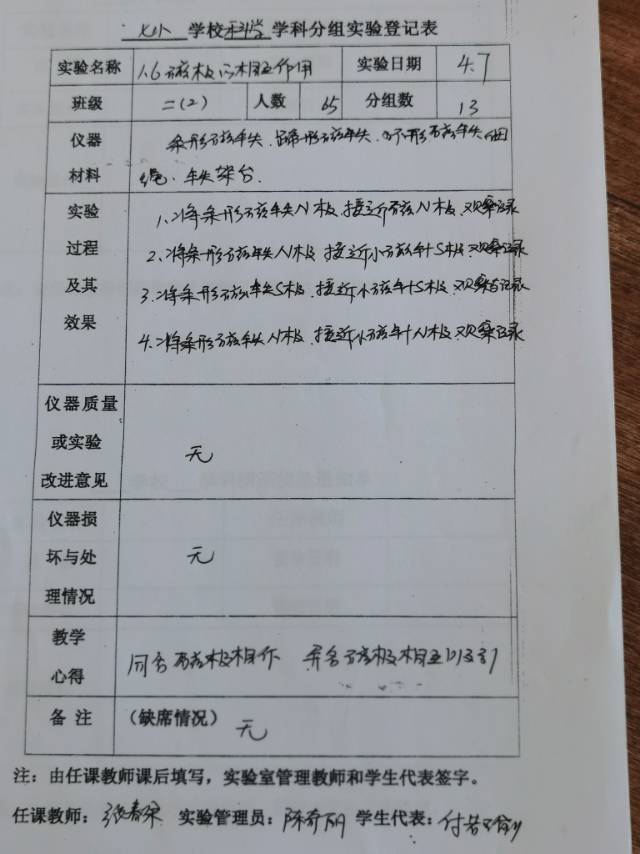 学校 科学 学科分组实验登记表
实验名称 1.6 磁极的相互作用 实验日期 4.7
班级 二(2) 人数 65 分组数 13
仪器材料 条形磁铁、蹄形磁铁、环形磁铁、细
绳、铁架台.
实验过程及其效果
1、将条形磁铁N极,接近磁N极,观察记录
2、将条形磁铁N极,接近小磁针S极,观察记录
3、将条形磁铁S极,接近小磁针S极,观察记录
4、将条形磁铁N极,接近小磁针N极,观察记录
仪器质量或实验改进意见 无
仪器损坏与处理情况 无
教学心得 同名磁极相斥 异名磁极相互吸引
备注 (缺席情况) 无
注:由任课教师课后填写,实验室管理教师和学生代表签字。
任课教师: 张春 实验管理员: 陈奇丽 学生代表: